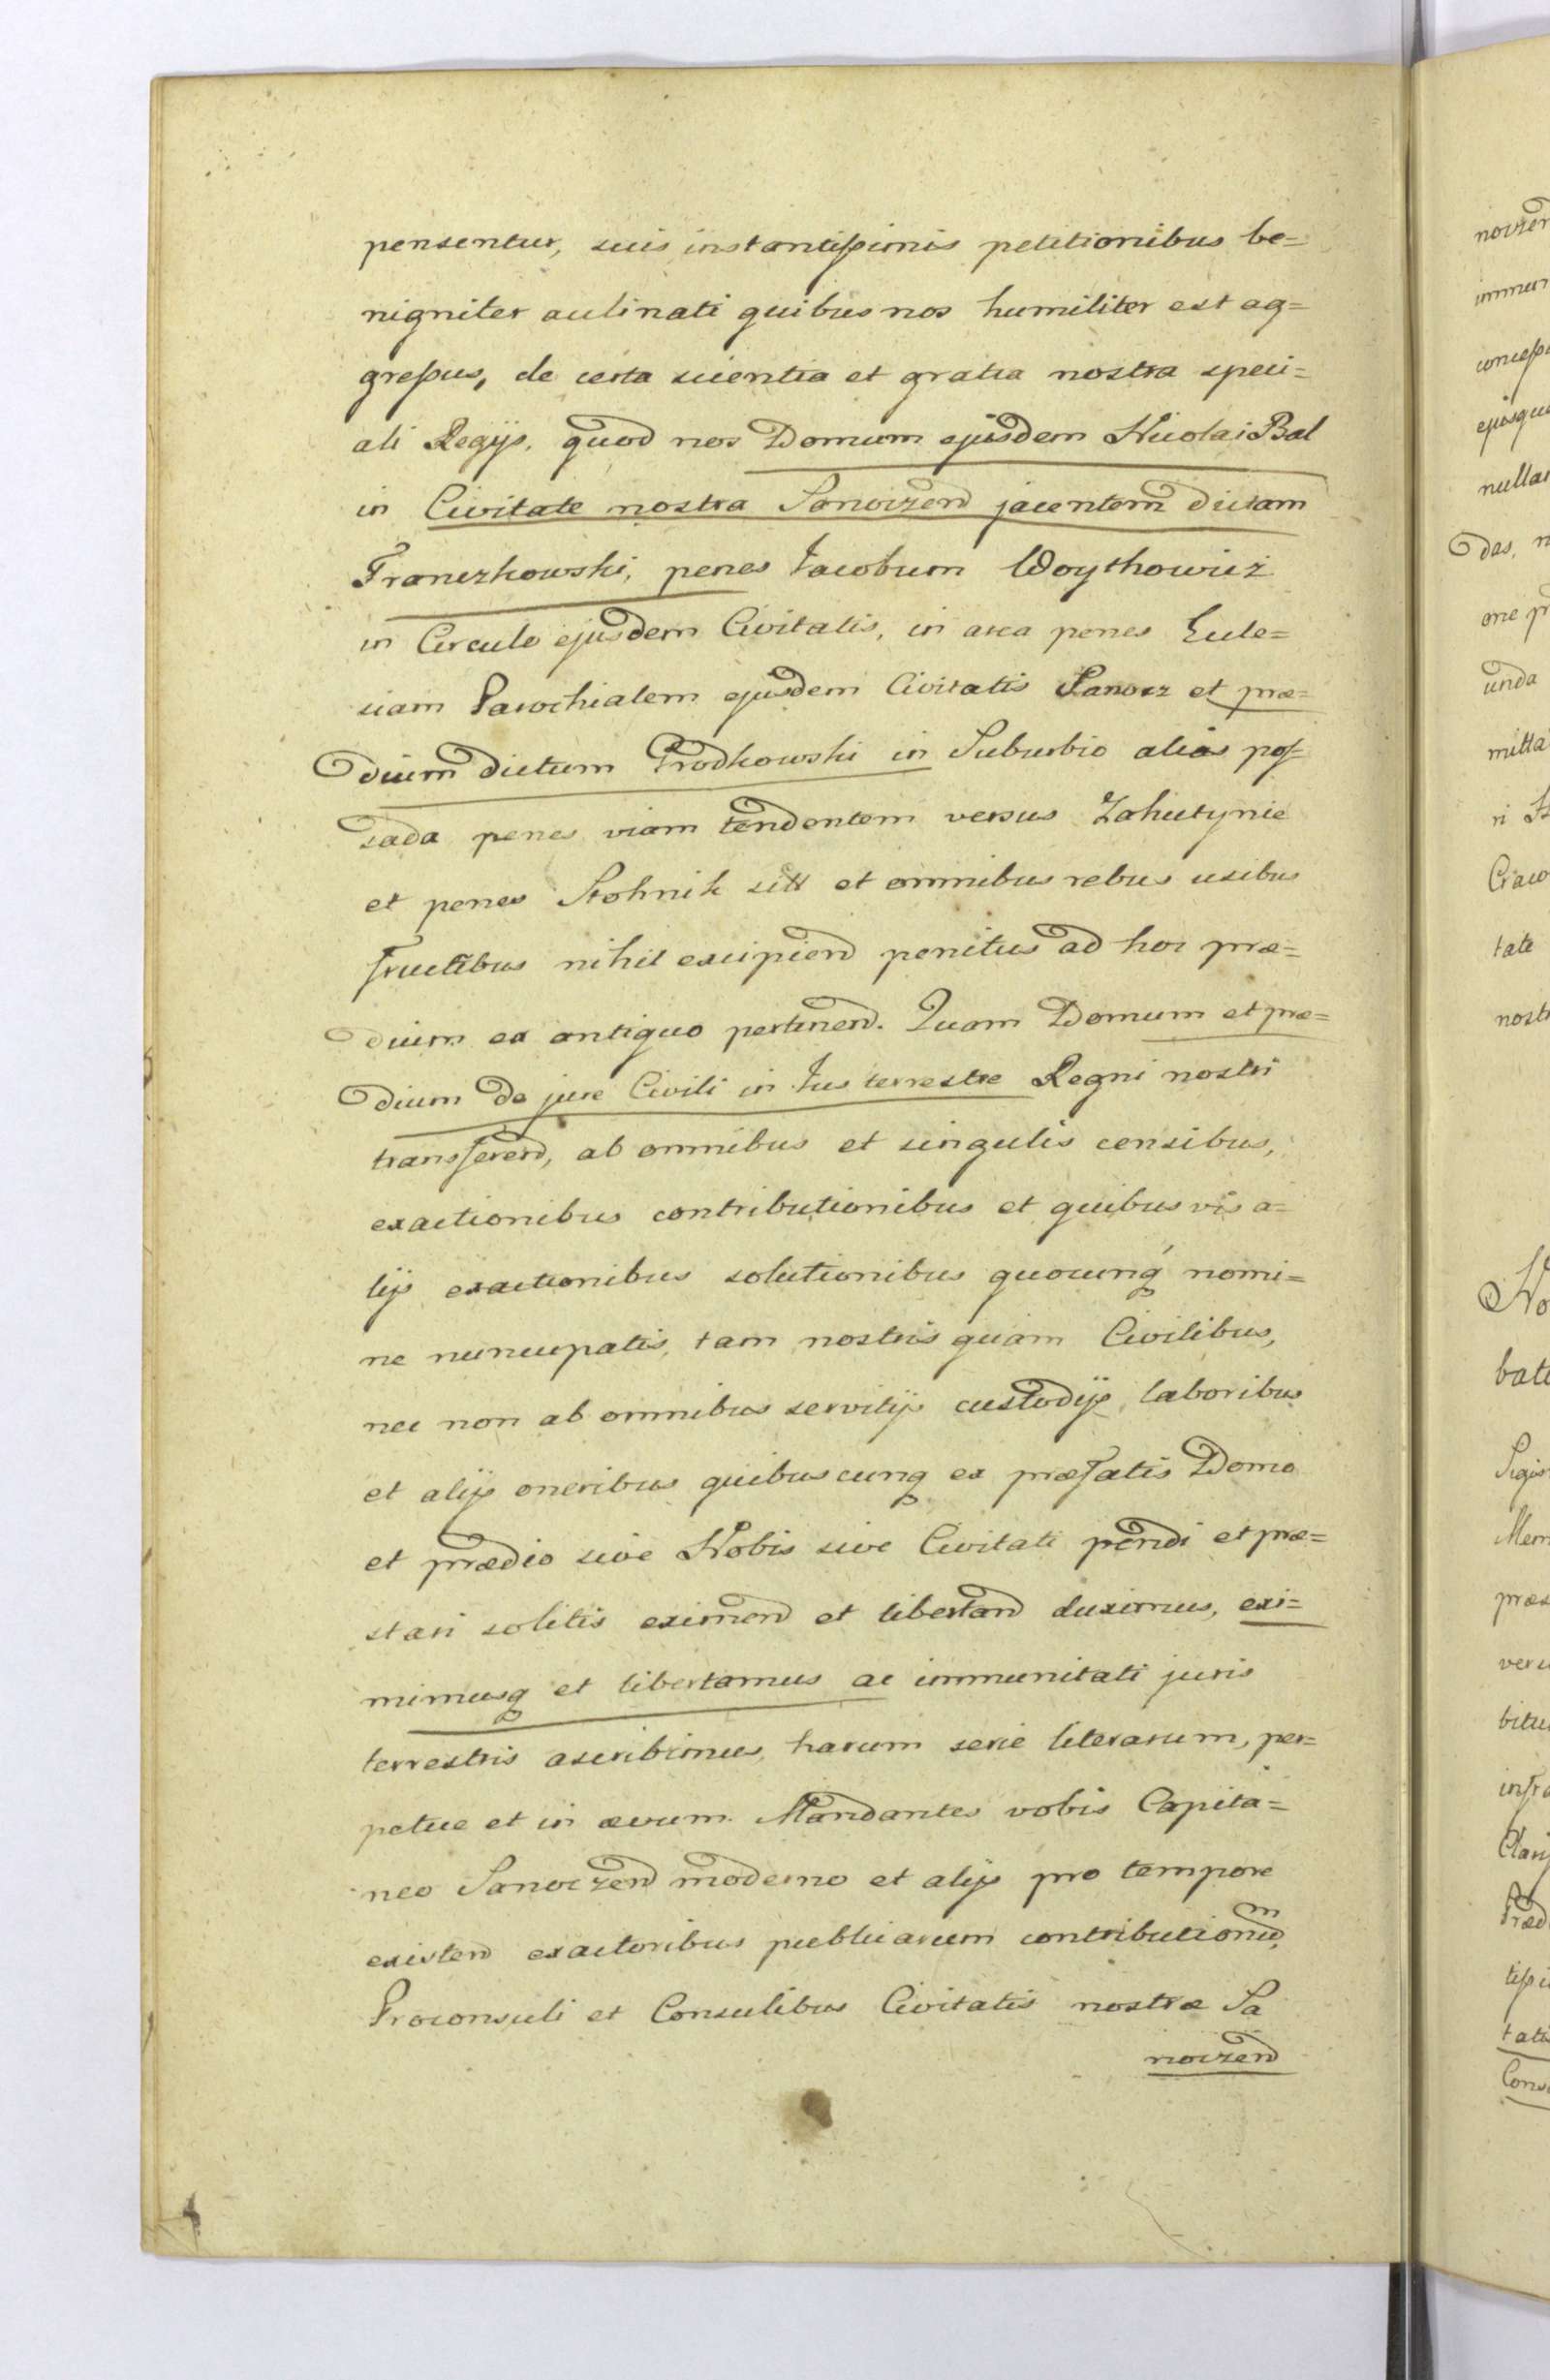 pensentur, suis instantißimis petitionibus be=
nigniter aclinati quibus nos humiliter est ag=
greßus, de certa scientia et gratia nostra speci=
ali Regijs, quod nos Domum ejusdem Nicolai Bal
in Civitate nostra Sanoczen jacentem dictam
Franczkowski, penes Jacobum Woythowicz
in Circulo ejusdem Civitatis, in area penes Eccle=
siam Parochialem ejusdem Civitatis Sanocz et præ=
dium dictum Prodkowski in Suburbio alias pos=
sada penes viam tendentem versus Zahutynie
et penes Stohnik sitt et omnibus rebus usibus
fructibus nihil excipiend penitus ad hoc præ=
dium ex antiquo pertinend. Quam Domum et præ=
dium de jure Civili in Jus terrestre Regni nostri
transferend, ab omnibus et singulis censibus,
exactionibus contributionibus et quibusvis a=
lijs exactionibus solutionibus quocunq́ nomi=
ne nuncupatis, tam nostris quam Civilibus,
nec non ab omnibus servitijs custodijs laboribus
et alijs oneribus quibuscunq ex præfatis Domo
et prædio sive Nobis sive Civitati pendi et præ=
stari solitis eximend et libertand duximus, exi=
mimusq et libertamus ac immunitati juris
terrestris ascribimus, harum serie literarum, per=
petue et in ævum. Mandantes vobis Capita=
neo Sanoczen moderno et alijs pro tempore
existen exactoribus publicarum contributionum,
Proconsuli et Consulibus Civitatis nostræ Sa
noczen
noczen
immun
conceß
ejusque
nullas
das, n
one pr
unda
mitta
ri
Craco
tate
nostr
No
bat
Sigis
Mem
præs
vers
bitu
infra
Clari
Præd
tißi
tati
Cons